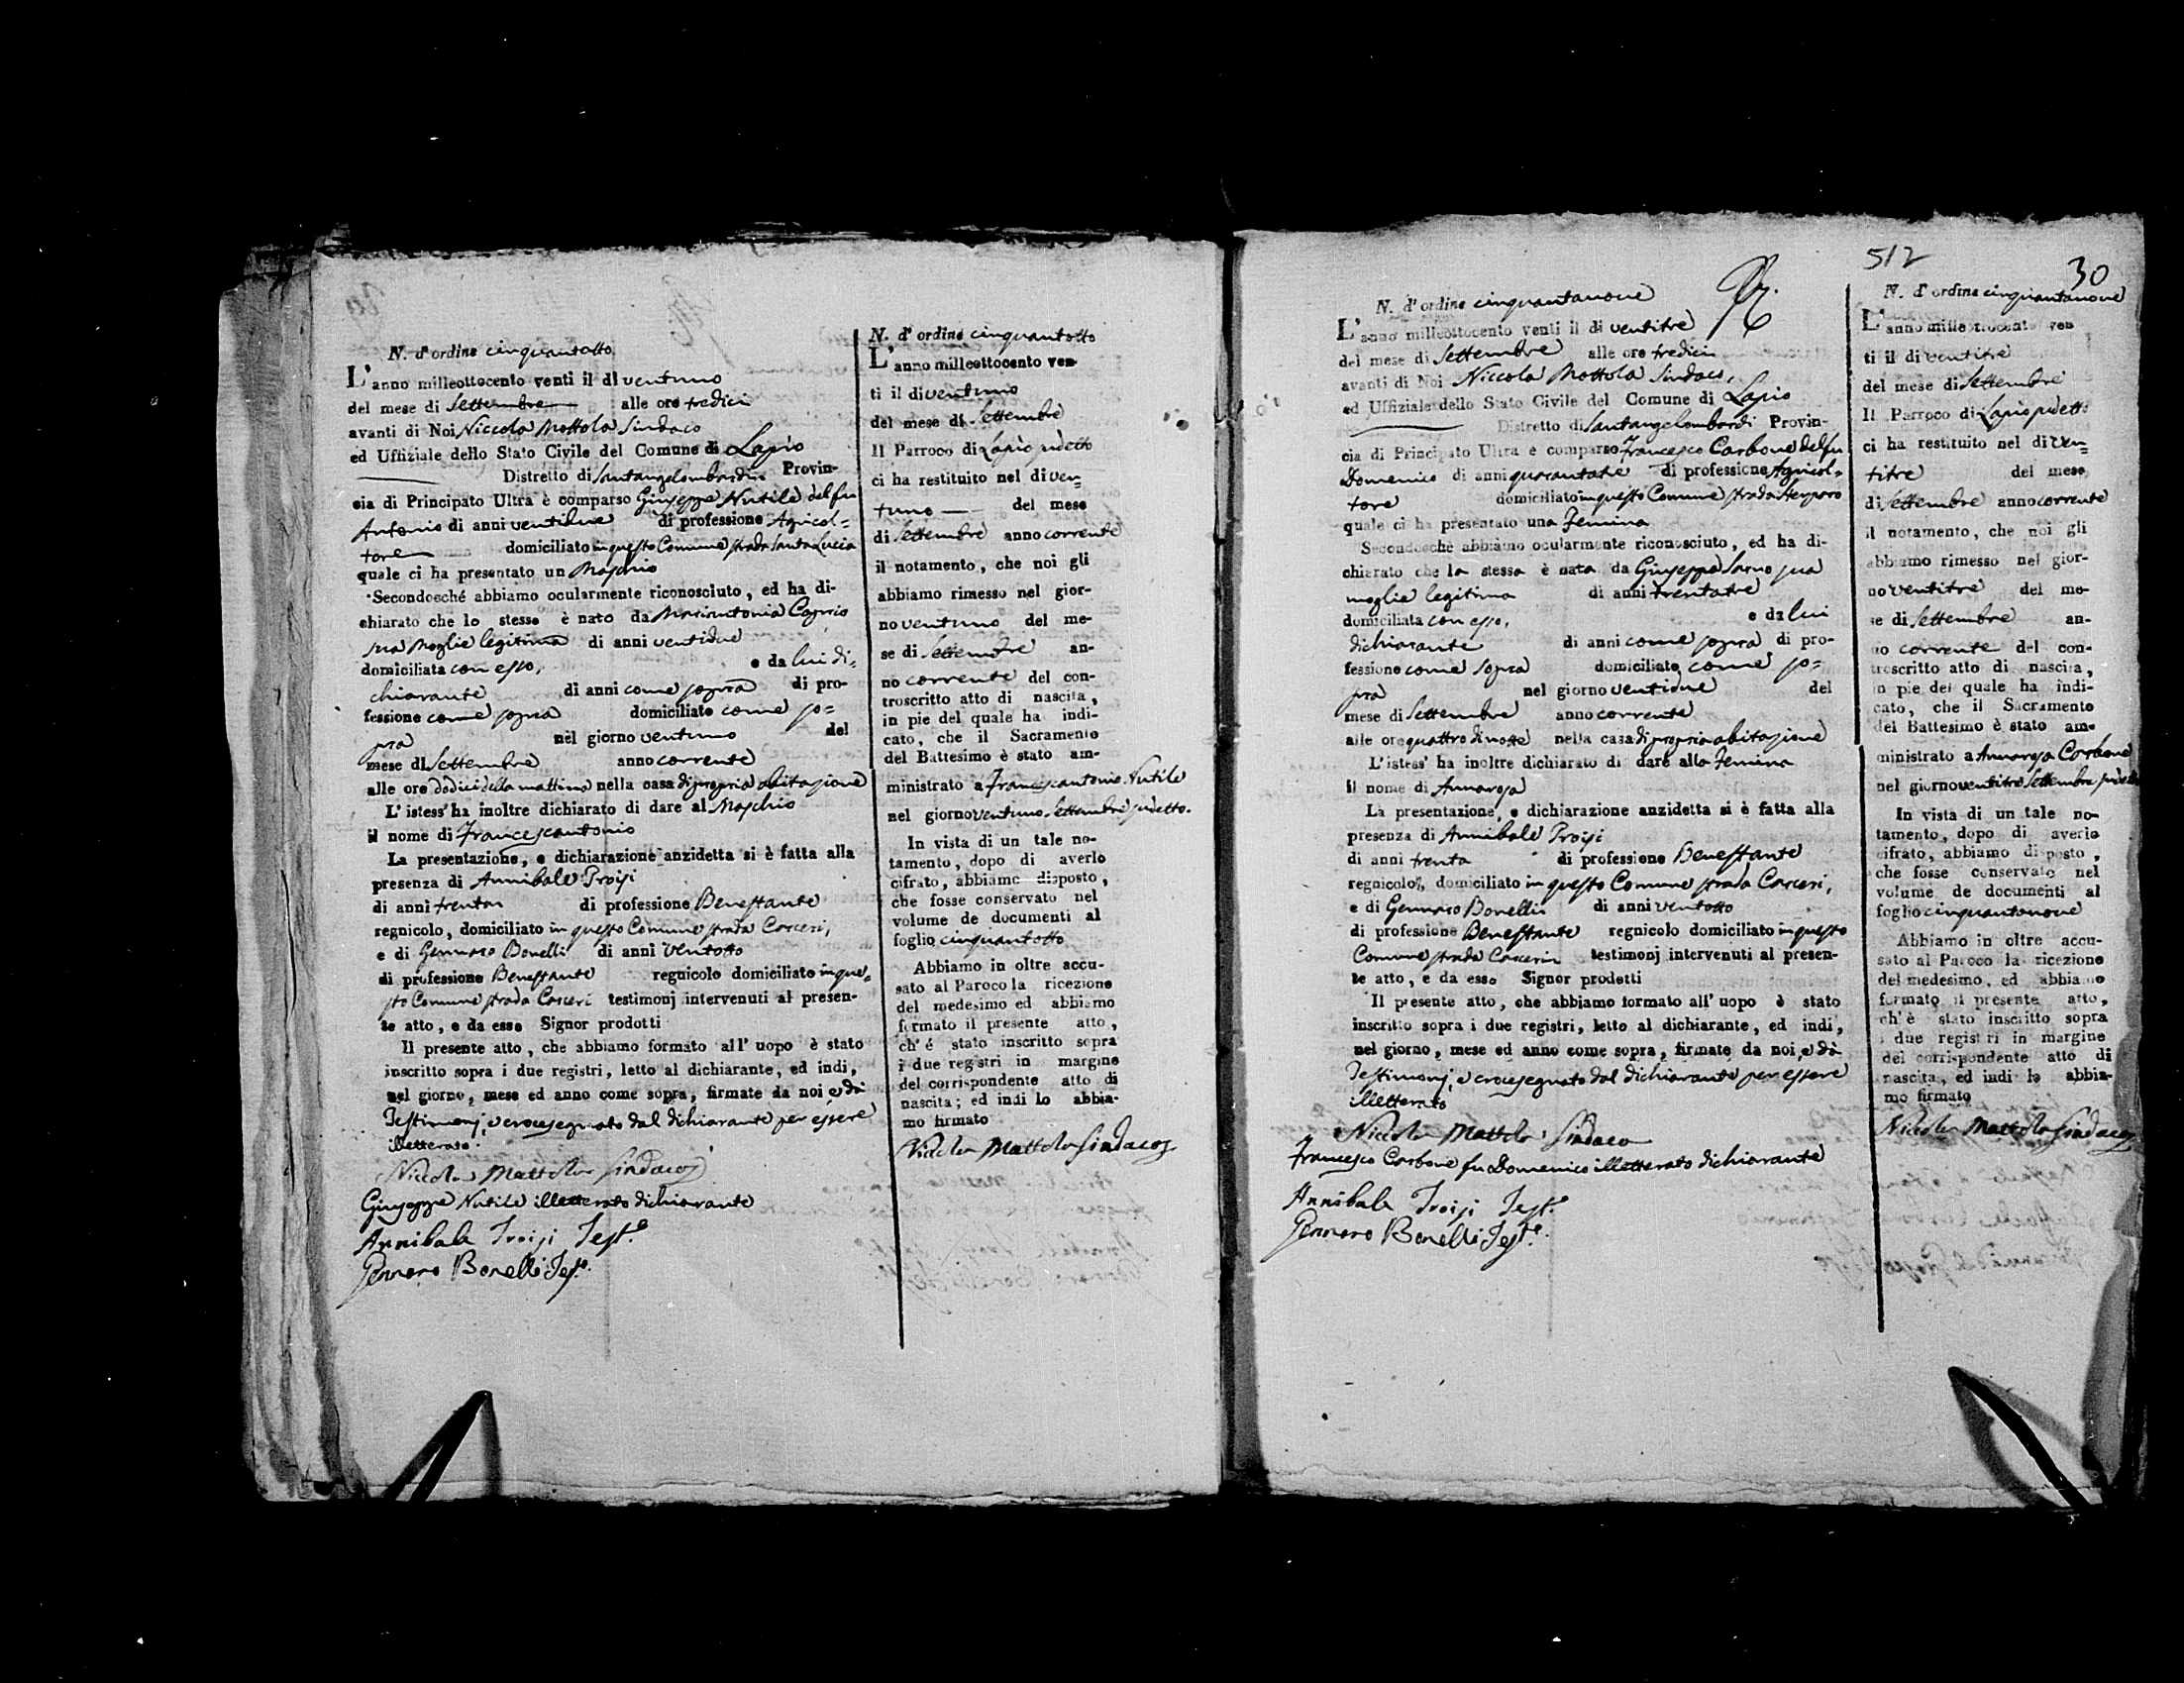 N. d'ordine cinquantotto
L'anno milleottocento venti il dì ventuno
del mese di Settembre alle ore tredici
avanti di Noi Niccola Mottola Sindaco
ed Uffiziale dello Stato Civile del Comune di Lapio
Distretto di Santangelombardi Provin-
cia di Principato Ultra è comparso Giuseppe Nutile del fu
Antonio di anni ventidue di professione Agricol=
tore domiciliato in questo Comune strada Santa Lucia
quale ci ha presentato un Maschio
Secondoché abbiamo ocularmente riconosciuto, ed ha di-
chiarato che lo stesso è nato da Mariantonia Caprio
sua Moglie legitima di anni ventidue
domiciliata con esso, e da lui di=
chiarante di anni come sopra di pro-
fessione come sopra domiciliato come so=
pra nel giorno ventuno del
mese di Settembre anno corrente
alle ore dodici della mattina nella casa di propria abitazione
L'istess' ha inoltre dichiarato di dare al Maschio
il nome di Francescantonio
La presentazione, e dichiarazione anzidetta si è fatta alla
presenza di Annibale Troisi
di anni trenta di professione Benestante
regnicolo, domiciliato in questo Comune strada Carceri,
e di Gennaro Bonelli di anni ventotto
di professione Benestante regnicolo domiciliato in que=
sto Comune strada Carceri testimonj intervenuti al presen-
te atto, e da esso Signor prodotti
Il presente atto, che abbiamo formato all' uopo è stato
inscritto sopra i due registri, letto al dichiarante, ed indi,
nel giorno, mese ed anno come sopra, firmate da noi e dà
Testimonj, e crocesegnato dal dichiarante per essere
illetterato
Niccola Mattola Sindaco
Giuseppe Nutile illetterato dichiarante
Annibale Troisi Test.e
Gennaro Bonelli Test.e
N. d'ordine cinquantotto
L'anno milleottocento ven-
ti il di ventuno
del mese di Settembre
Il Parroco di Lapio pdetto
ci ha restituito nel di ven=
tuno del mese
di Settembre anno corrente
il notamento, che noi gli
abbiamo rimesso nel gior-
no ventuno del me-
se di Settembre an-
no corrente del con-
troscritto atto di nascita,
in pie del quale ha indi-
cato, che il Sacramento
del Battesimo è stato am-
ministrato a Francescantonio Nutile
nel giorno ventuno Settembre pdetto.
In vista di un tale no-
tamento, dopo di averlo
cifrato, abbiamo disposto,
che fosse conservato nel
volume de documenti al
foglio cinquantotto
Abbiamo in oltre accu-
sato al Paroco la ricezione
del medesimo ed abbiamo
formato il presente atto,
ch' é stato inscritto sopra
i due registri in margine
del corrispondente atto di
nascita; ed indi lo abbia-
mo firmato
Niccola Mattola Sindaco
512
30
N. d'ordine cinquantanove
L'anno milleottocento venti il di ventitre
del mese di Settembre alle ore tredici
avanti di Noi Niccola Mottola Sindaco,
ed Uffiziale dello Stato Civile del Comune di Lapio
Distretto di Santangelombardi Provin-
cia di Principato Ultra è comparso Francesco Carbone del fu
Domenico di anni quarantatre di professione Agricol=
tore domiciliato in questo Comune strada
quale ci ha presentato una Femina
Secondosché abbiamo ocularmente riconosciuto, ed ha di-
chiarato che la stessa è nata da Giuseppa Sarno sua
moglie legitima di anni trentatre
domiciliata con esso, e da lui
dichiarante di anni come sopra di pro-
fessione come sopra domiciliato come so=
pra nel giorno ventidue del
mese di Settembre anno corrente
alle ore quattro di notte nella casa di propria abitazione
L'istess' ha inoltre dichiarato di dare alla Femina
il nome di Annarosa
La presentazione, e dichiarazione anzidetta si è fatta alla
presenza di Annibale Troisi
di anni trenta di professione Benestante
regnicolo, domiciliato in questo Comune strada Carceri,
e di Gennaro Bonelli di anni ventotto
di professione Benestante regnicolo domiciliato in questo
Comune strada Carceri testimonj intervenuti al presen-
te atto, e da esso Signor prodotti
Il presente atto, che abbiamo formato all' uopo è stato
inscritto sopra i due registri, letto al dichiarante, ed indi,
nel giorno, mese ed anno come sopra, firmate da noi, e dà
Testimonj, e crocesegnato dal dichiarante per essere
illetterato
Niccola Mattola Sindaco
Francesco Carbone fu Domenico illetterato dichiarante
Annibale Troisi Test.e
Gennaro Bonelli Test.e
N. d'ordine cinquantanove
L'anno milleottocento ven
ti il di ventitre
del mese di Settembre
Il Parroco di Lapio pdetto
ci ha restituito nel di ven=
titre del mese
di Settembre anno corrente
il notamento, che noi gli
abbiamo rimesso nel gior-
no ventitre del me-
se di Settembre an-
no corrente del con-
troscritto atto di nascita,
in pie del quale ha indi-
cato, che il Sacramento
del Battesimo è stato am-
ministrato a Annarosa Carbone
nel giorno ventitre Settembre pdetto
In vista di un tale no-
tamento, dopo di averlo
cifrato, abbiamo disposto,
che fosse conservato nel
volume de documenti al
foglio cinquantanove
Abbiamo in oltre accu-
sato al Paroco la ricezione
del medesimo, ed abbiamo
formato il presente atto,
ch' è stato inscritto sopra
i due registri in margine
del corrispondente atto di
nascita, ed indi lo abbia-
mo firmato
Niccola Mattola Sindaco